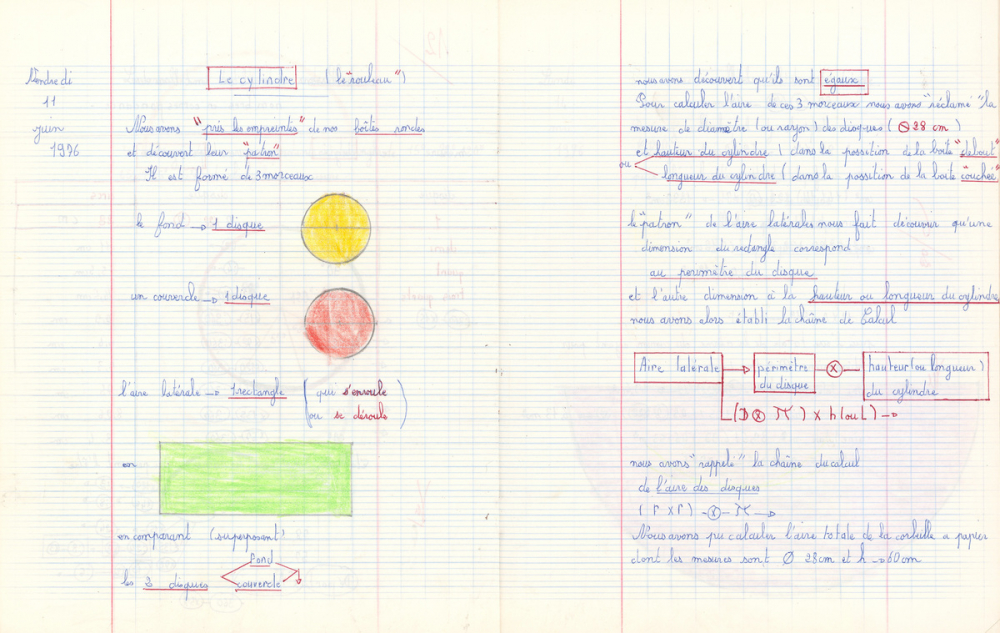 Vendredi
11
juin
1976
Le cylindre (le "rouleau")
Nous avons "pris les empreintes" de nos boîtes rondes
et découvert leur "patron"
Il est formé de 3 morceaux
le fond → 1 disque
un couvercle → 1 disque
l'aire latérale → 1 rectangle (qui s'enroule
ou se déroule)
en
en comparant (superposant)
les 2 disques fond
couvercle
nous avons découvert qu'ils sont égaux
Pour calculer l'aire de ces 3 morceaux nous avons "réclamé" la
mesure de diamètre (ou rayon) des disques (Ø 28 cm)
et hauteur du cylindre (dans la possition de la boîte "debout"
ou
longueur du cylindre (dans la possition de la boîte "couchée"
le "patron" de l'aire latérales nous fait découvir qu'une
dimension du rectangle correspond
au perimètre du disque
et l'autre dimension à la hauteur ou longueur du cylindre
nous avons alors établi la chaîne de Calcul
Aire latérale → périmètre du disque ⊗ hauteur (ou longueur) du cylindre
(D ⊗ π) x h (ou L) →
nous avons "rappelé" la chaîne du calcul
de l'aire des disques
(r x r) ⊗ π →
Nous avons pu calculer l'aire totale de la corbeille a papier
dont les mesures sont Ø 28cm et h → 60cm